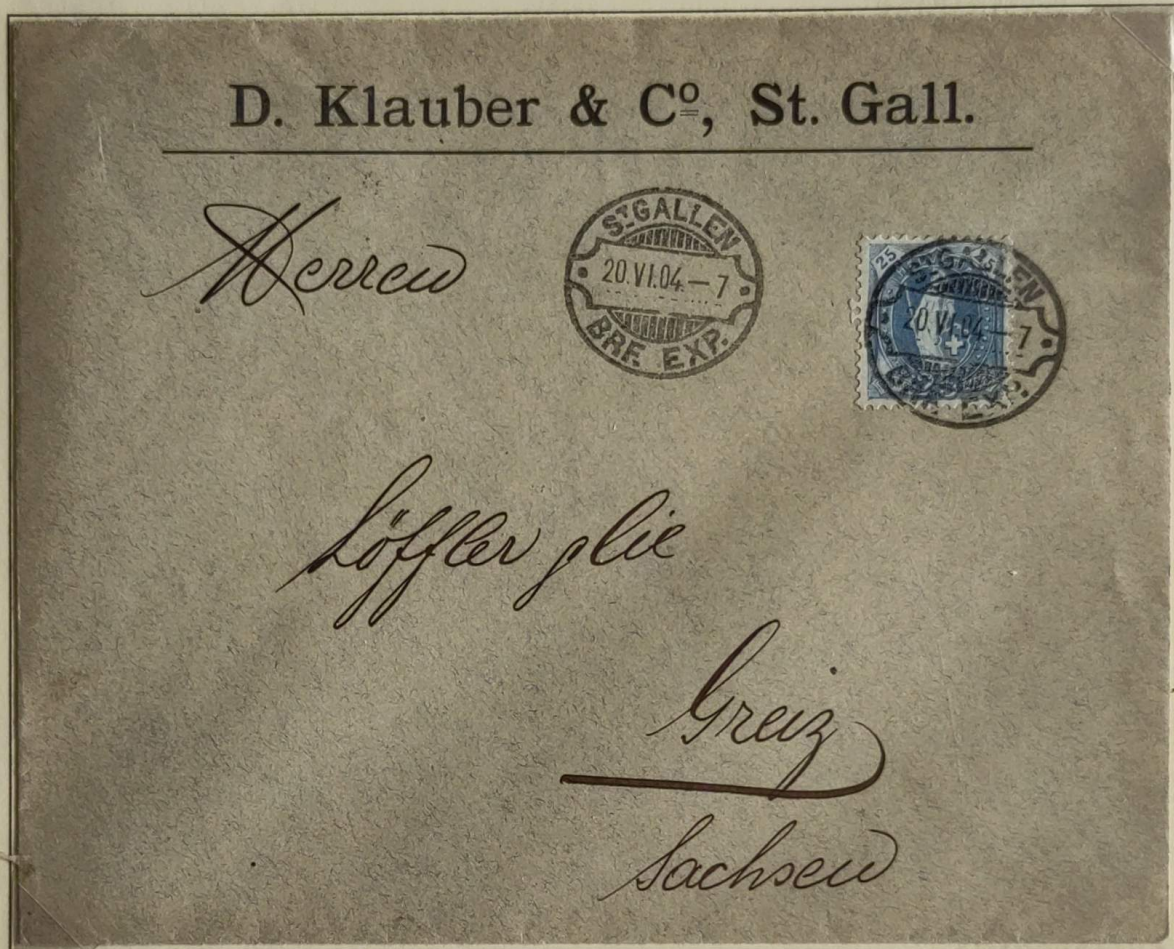 D. Klauber & Cº, St. Gall.
Herren
ST GALLEN
20.VI.04.–7
BRF. EXP.
25 25
ST GALLEN
20.VI.04.–7
BRF. EXP.
Löffler
Greiz
Sachsen